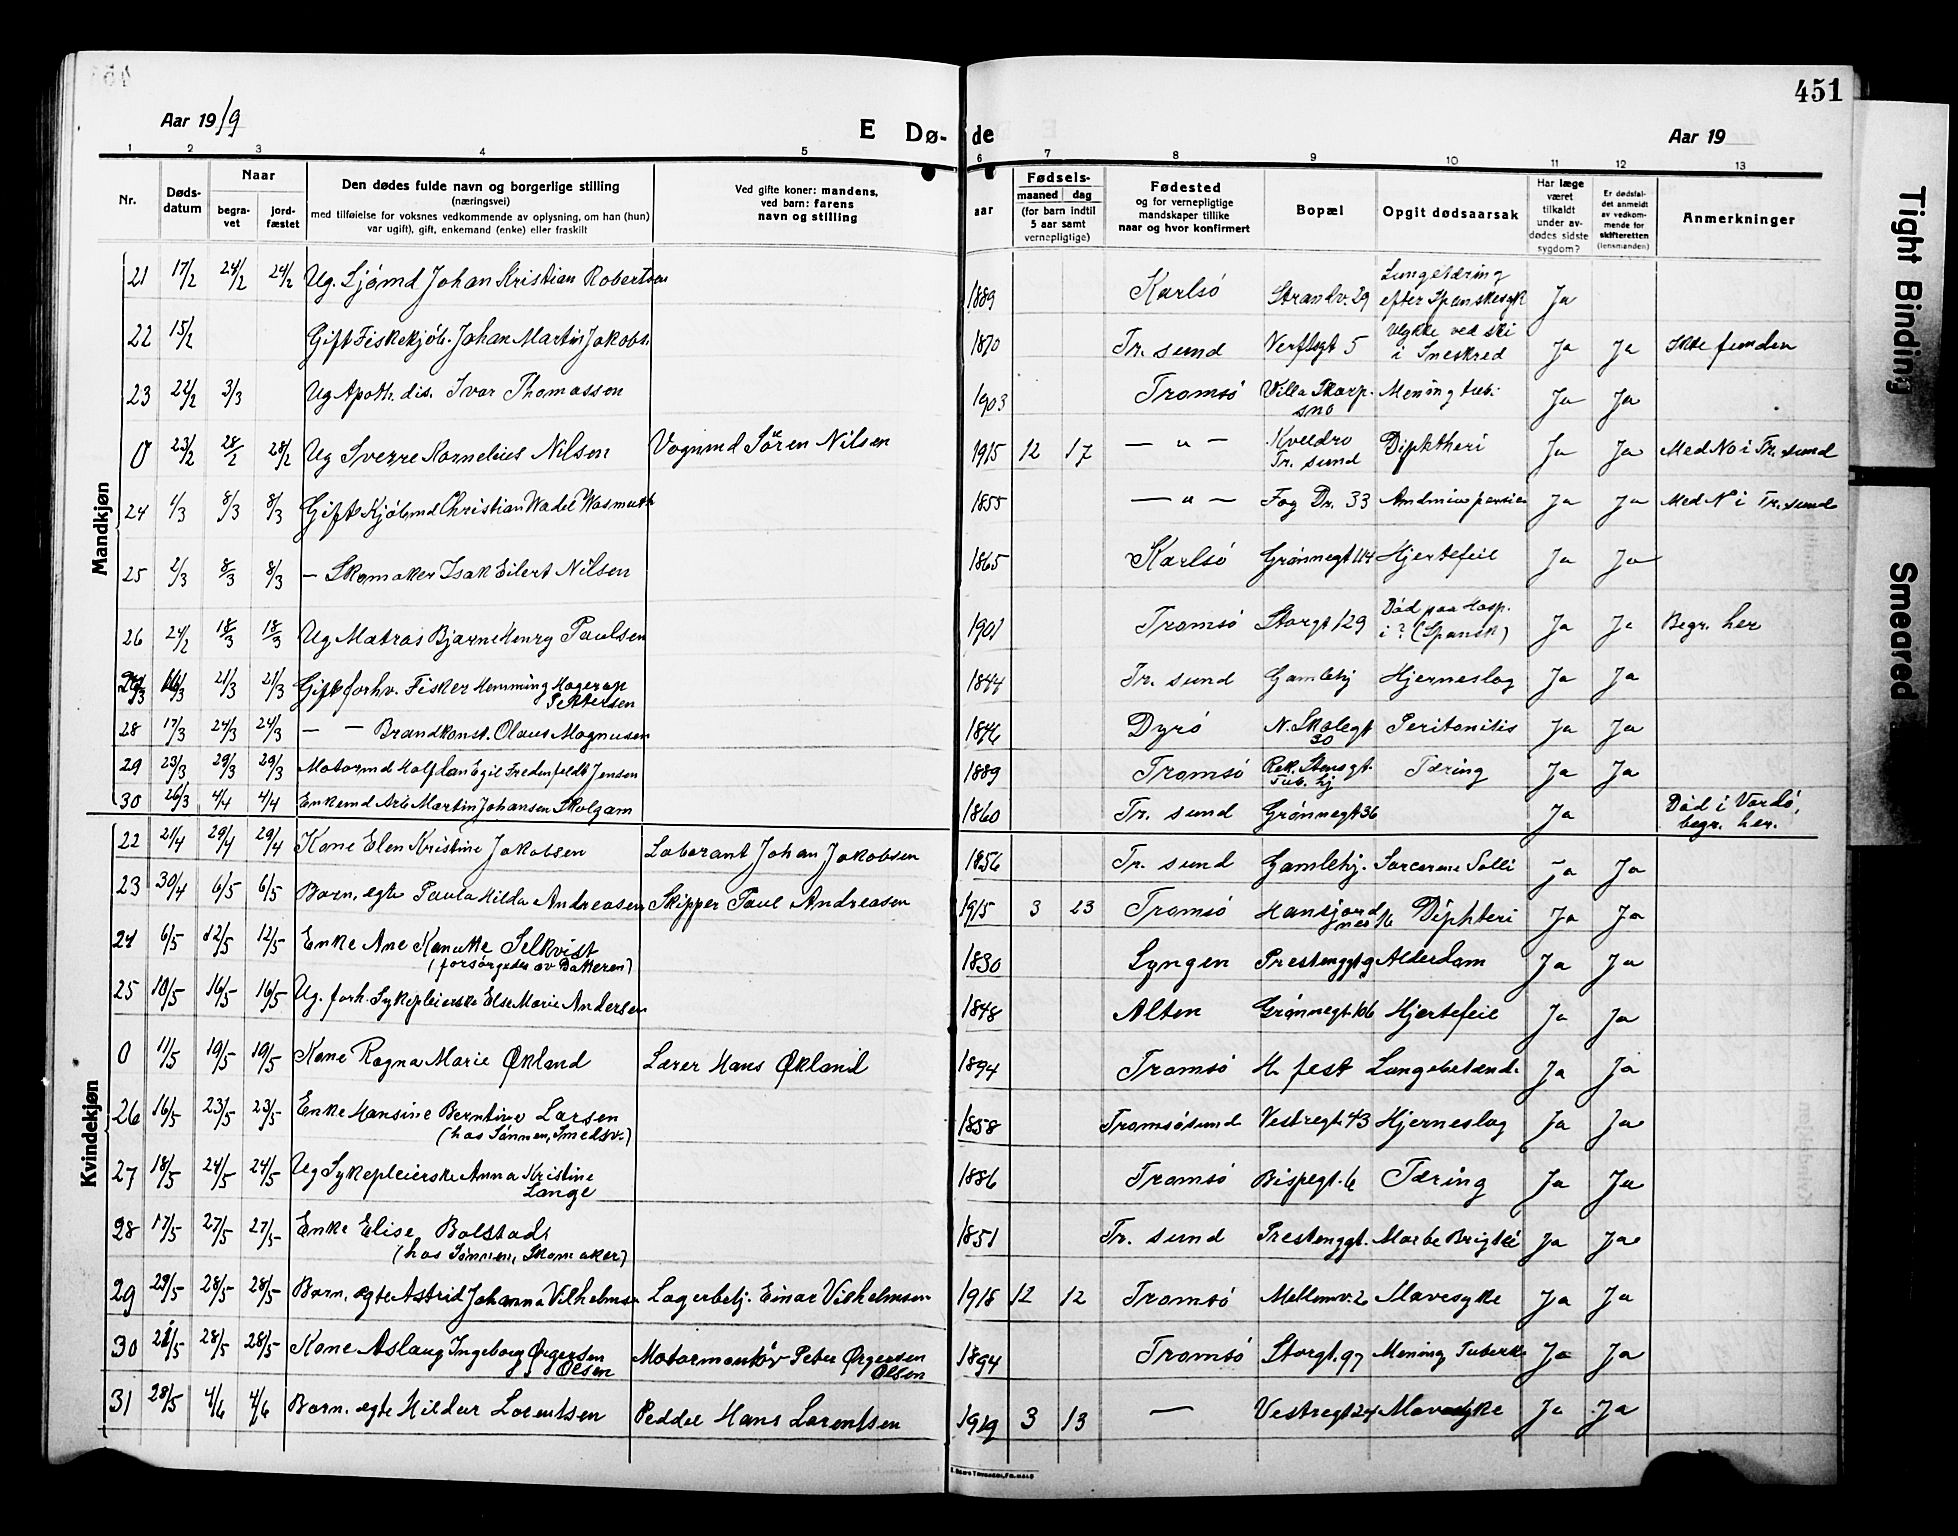 451
Aar 1919
E Dø- de
Aar 19
1 2 3 4 5 6 7 8 9 10 11 12 13
Nr.
Døds-
datum
Naar
begra-
vet
jord-
fæstet
Den dødes fulde navn og borgerlige stilling
(næringsvei)
med tilføielse for voksnes vedkommende av oplysning, om han (hun)
var ugift), gift, enkemand (enke) eller fraskilt
Ved gifte koner: mandens,
ved barn: farens
navn og stilling
Fødsels-
aar
maaned dag
(for barn indtil
5 aar samt
vernepligtige)
Fødested
og for vernepligtige
mandskaper tillike
naar og hvor konfirmert
Bopæl
Opgit dødsaarsak
Har læge
været
tilkaldt
under av-
dødes sidste
sygdom?
Er dødsfal-
det anmeldt
av vedkom-
mende for
skifteretten
(lensmanden)
Anmerkninger
Mandkjøn
21 17/2 24/2 24/2 Ug. Sjømd Johan Kristian Robertsen 1889 Karlsö Strandv. 29 Lungetæring
efter Spanskesyk Ja
22 15/2 Gift Fiskekjöb. Johan Martin Jakobs. 1870 Tr. sund Verftsgt 5 Ulykke ved ski
i Sneskred Ja Ja Ikke funden
23 22/2 3/3 Ug Apoth. dis. Ivar Thomassen 1903 Tromsö Villa Skarp-
sno Mening tub. Ja Ja
0 23/2 28/2 28/2 Ug Sverre Kornelius Nilsen Vognmd Sören Nilsen 1915 12 17 — " — Kveldro
Tr. sund Diphtheri Ja Ja Med No i Tr. sund
24 1/3 8/3 8/3 Gift Kjöbmd Christian Wadel Wasmuth 1855 — " — Fog Dr. 33 Ja Ja Med N i Tr. sund
25 2/3 8/3 8/3 — Skomaker Isak Eilert Nilsen 1865 Karlsö Grønnegt 114 Hjertefeil Ja Ja
26 24/2 18/3 18/3 Ug Matros Bjarne Henry Paulsen 1901 Tromsö Storgt 129 Död paa Hosp.
i ? (Spansk) Ja Ja Begr. her
21/3 21/3 Gift forhv. Fisker Hemming Hagerup
Pettersen 1844 Tr. sund Gamlehj Hjerneslag Ja Ja
28 17/3 24/3 24/3 — — Brandkonst. Olaus Magnusen 1846 Dyrö N. Skolegt
30 Peritonitis Ja Ja
29 23/3 29/3 29/3 Motormd Halfdan Egil Fredenfeldt Jensen 1889 Tromsö Rek. Stensgt.
Tub. hj Tæring Ja Ja
30 26/3 4/4 4/4 Enkemd Arb Martin Johansen Skolgam 1860 Tr. sund Grönnegt 36 Ja Död i Vardö,
begr. her.
Kvindekjøn
22 21/4 29/4 29/4 Kone Elen Kristine Jakobsen Laborant Johan Jakobsen 1856 Tr. sund Gamlehj. Ja Ja
23 30/4 6/5 6/5 Barn, egte Paula Hilda Andreasen Skipper Paul Andreasen 1915 3 23 Tromsö Hansjord
nes 16 Diphteri Ja Ja
24 6/5 12/5 12/5 Enke Ane Kanutte Selkvist
(forsörgedes av Datteren) 1830 Lyngen Prestenggt 9 Alderdom Ja Ja
25 10/5 16/5 16/5 Ug. forh. Sykepleierske Else Marie Andersen 1848 Alten Grønnegt 106 Hjertefeil Ja Ja
0 11/5 19/5 19/5 Kone Ragna Marie Økland Lærer Hans Økland 1894 Tromsö H. fest Lungebetænd. Ja Ja
26 16/5 23/5 23/5 Enke Hansine Berntine Larsen
(hos Sönnen, Smedsv.) 1858 Tromsösund Vestregt. 43 Hjerneslag Ja Ja
27 18/5 24/5 24/5 Ug Sykepleierske Anna Kristine
Lange 1886 Tromsö Bispegt. 6 Tæring Ja Ja
28 17/5 27/5 27/5 Enke Elise Bolstad
(hos Sönnen, Skomaker) 1851 Tr. sund Prestenggt. Morbe Brigtii Ja Ja
29 23/5 28/5 28/5 Barn, egte Astrid Johanna Vilhelmsen Lagerbetj. Einar Vilhelmsen 1918 12 12 Tromsö Mellemv. 2 Mavesyke Ja Ja
30 21/5 28/5 28/5 Kone Aslaug Ingeborg Ørgersen
Olsen Motormontör Peter Ørgersen
Olsen 1894 Tromsö Storgt. 97 Mening Tuberk. Ja Ja
31 28/5 4/6 4/6 Barn, egte Hildur Lorentsen Peddel Hans Lorentsen 1919 3 13 — Vestregt 24 Mavesyke Ja Ja
Tight Binding
Smeared